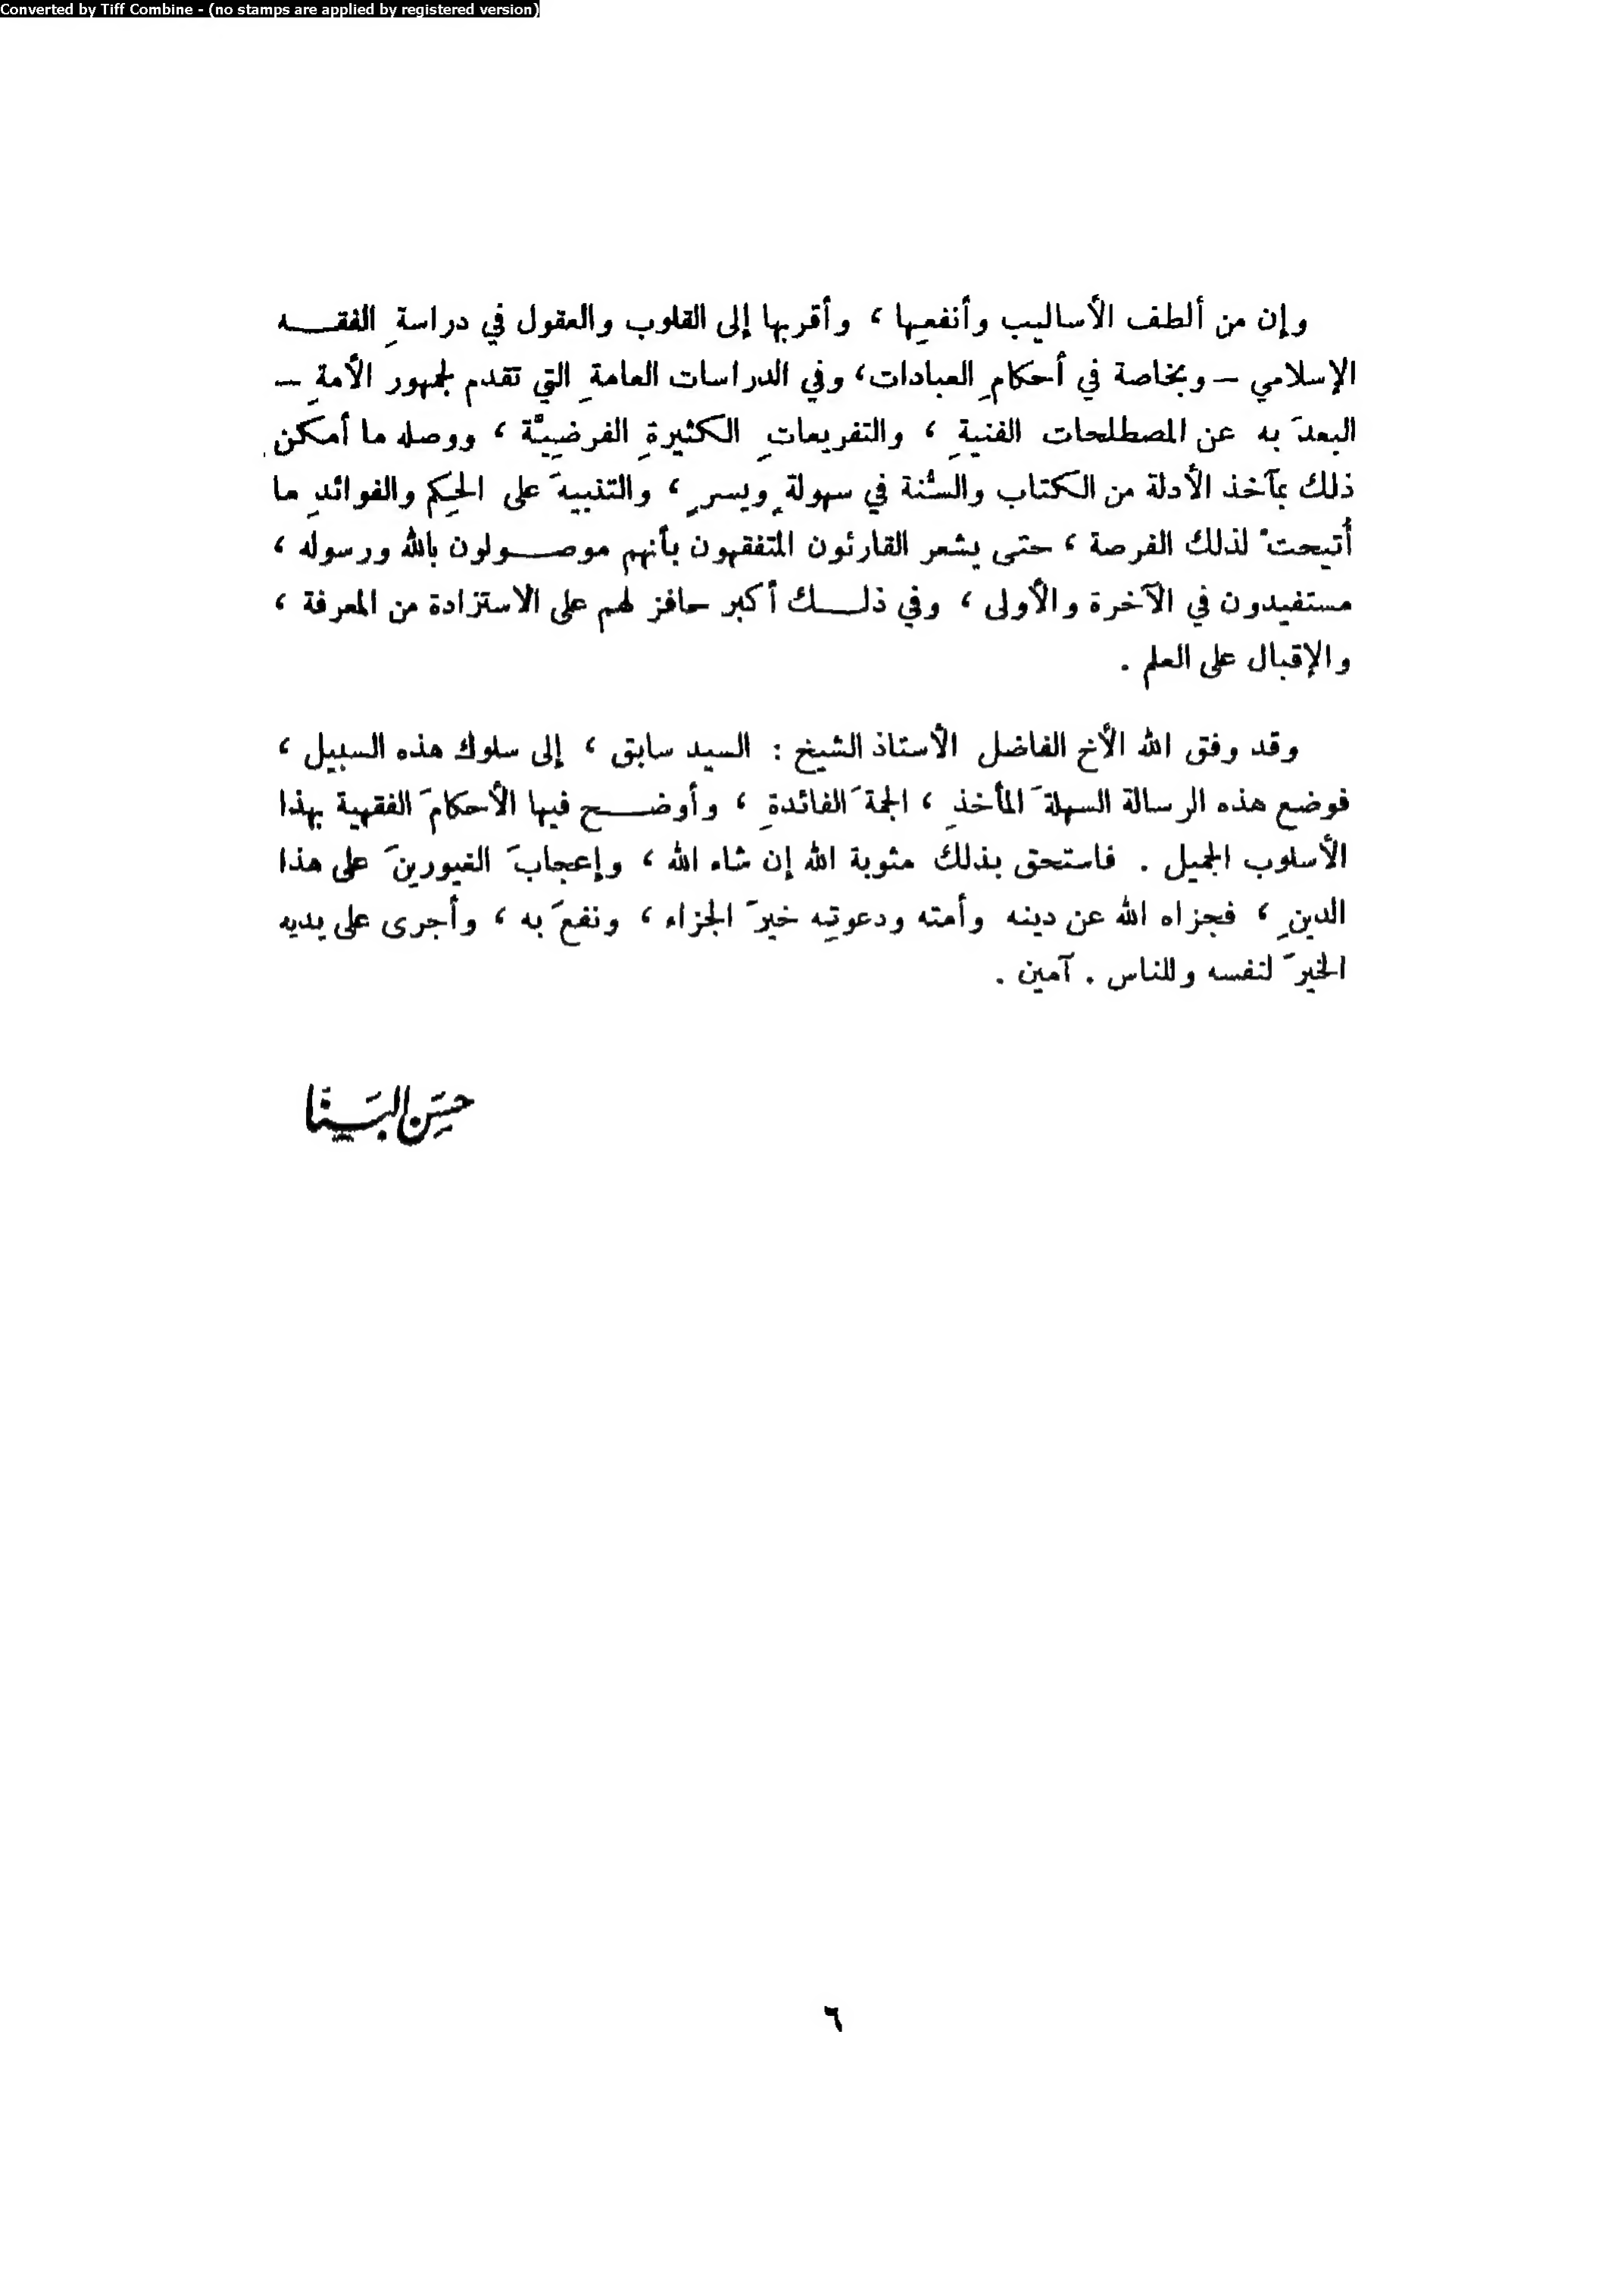 Converted by Tiff Combine - (no stamps are applied by registered version)
وإن من ألطف الأساليب وأنفعِها ، وأقربها إلى القلوب والعقول في دراسةِ الفقـــه
الإسلامي – وبخاصة في أحكامِ العبادات، وفي الدراسات العامةِ التي تقدم لجمهور الأمةِ –
البعدَ به عن المصطلحات الفنيةِ ، والتفريعاتِ الكثيرةِ الفرضِيَّة ، ووصله ما أمكن
ذلك بمآخذ الأدلة من الكتاب والسُّنة في سهولةٍ ويسرٍ ، والتنبيهَ على الحِكم والفوائدِ ما
أُتيحتْ لذلك الفرصة ، حتى يشعر القارئون المتفقهون بأنهم موصـــولون بالله ورسوله ،
مستفيدون في الآخرة والأولى ، وفي ذلـــك أكبر حافز لهم على الاستزادة من المعرفة ،
والإقبال على العلم .
وقد وفق الله الأخ الفاضل الأستاذ الشيخ : السيد سابق ، إلى سلوك هذه السبيل ،
فوضع هذه الرسالة السهلةَ المأخذِ ، الجمةَ الفائدةِ ، وأوضـــح فيها الأحكامَ الفقهية بهذا
الأسلوب الجميل . فاستحق بذلك مثوبة الله إن شاء الله ، وإعجابَ الغيورينَ على هذا
الدينِ ، فجزاه الله عن دينه وأمته ودعوتِه خيرَ الجزاء ، ونفعَ به ، وأجرى على يديه
الخيرَ لنفسه وللناس . آمين .
حسَن البَـنّا
٦